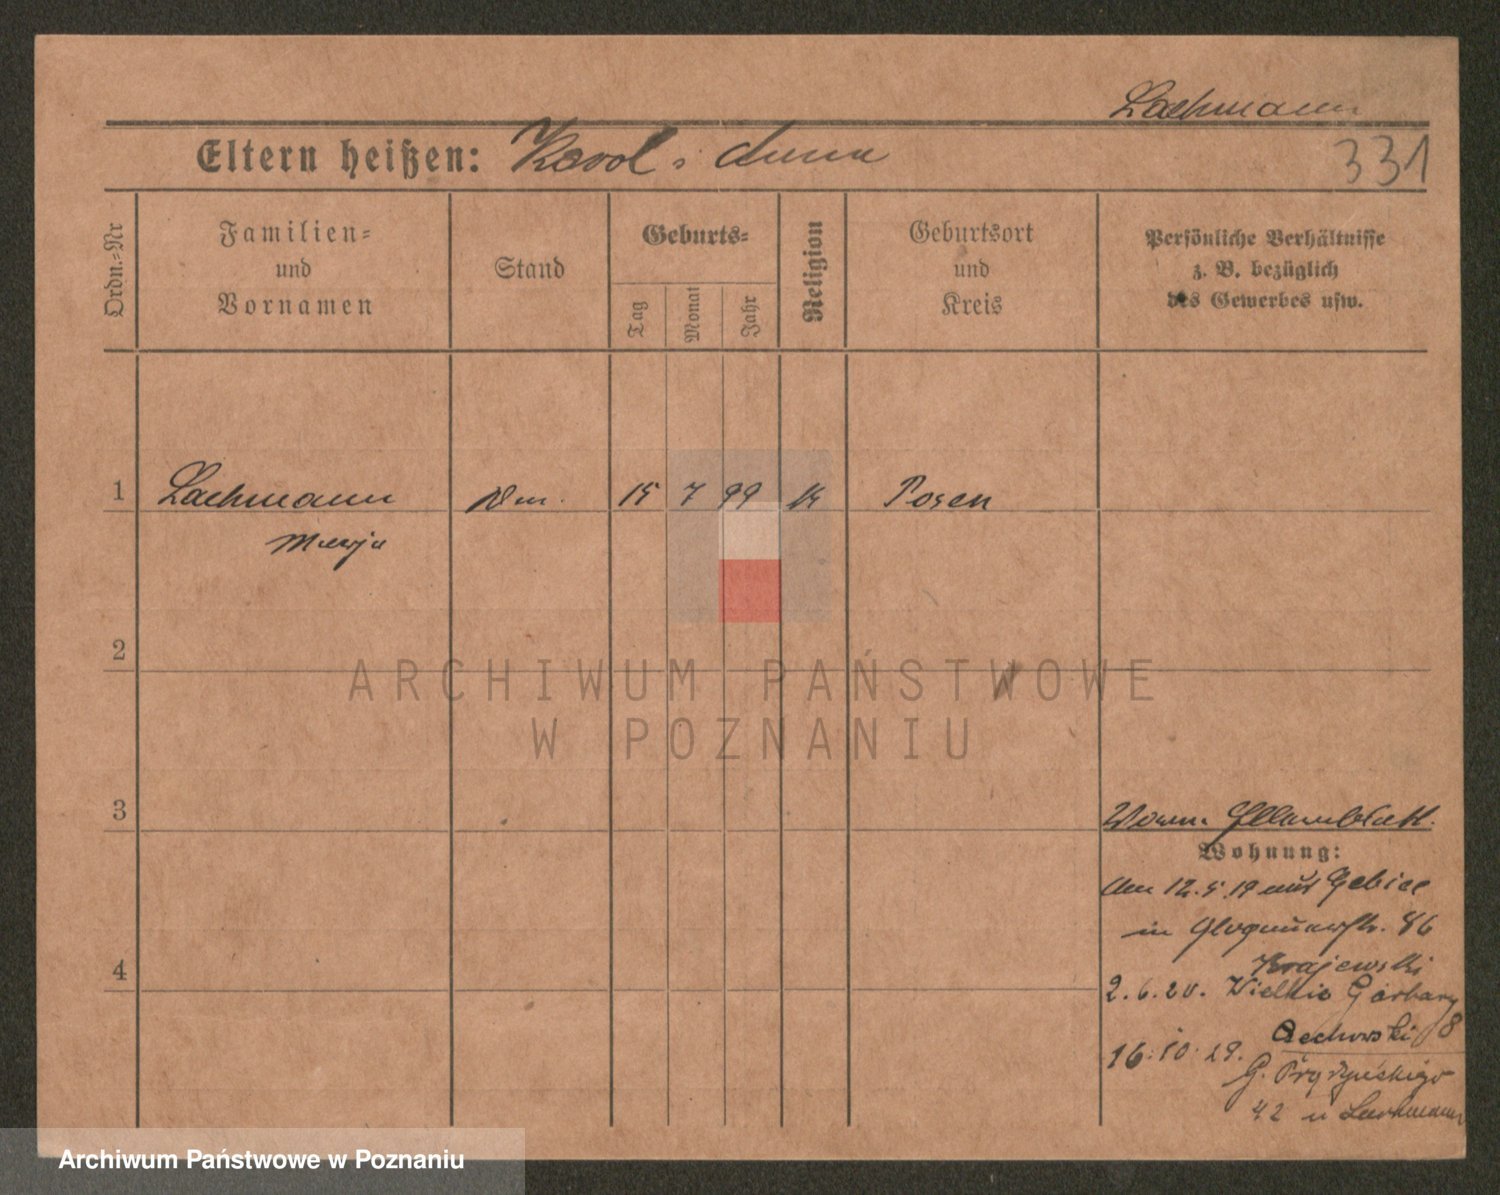 Lachmann
Eltern heißen: Karol i Anna
331
Ordn.-Nr
Familien-
und
Vornamen
Stand
Geburts-
Tag
Monat
Jahr
Religion
Geburtsort
und
Kreis
Persönliche Verhältnisse
z. B. bezüglich
des Gewerbes usw.
1 Lachmann 15 7 99 k Posen
Marja
2
3
Wohnung:
am 12.5.19 aus
in Glogauerstr. 86
Krajewski
4
2.6.20. Wielkie Garbary
8
16.10.29.
G.
42 u Lachmann
ARCHIWUM PAŃSTWOWE
W POZNANIU
Archiwum Państwowe w Poznaniu